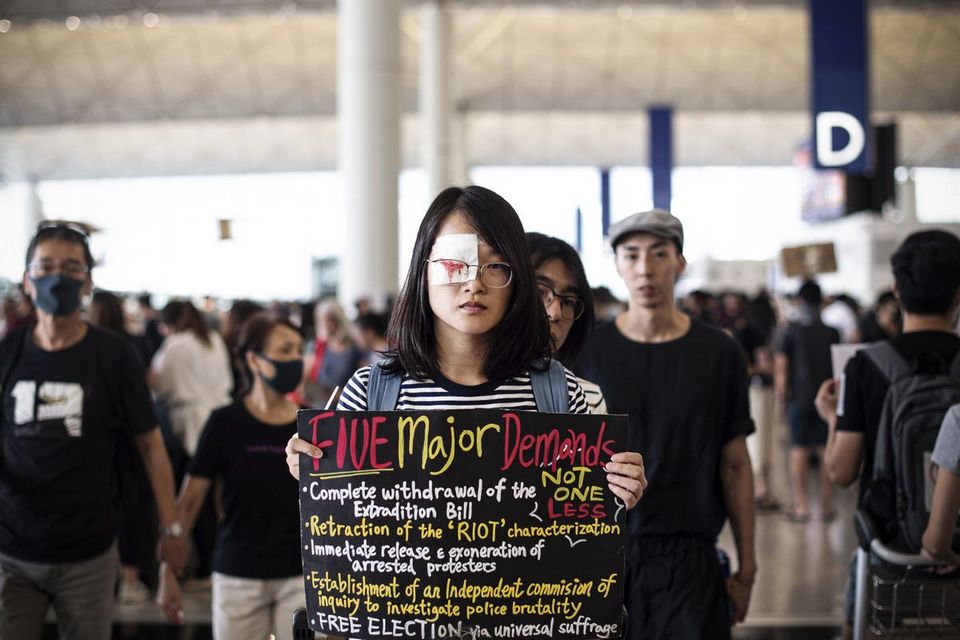 D
FIVE Major Demands
NOT
ONE
LESS
· Complete withdrawal of the
Extradition Bill
· Retraction of the 'RIOT' characterization
· Immediate release & exoneration of
arrested protesters
· Establishment of an Independent commision of
inquiry to investigate police brutality
· FREE ELECTION via universal suffrage